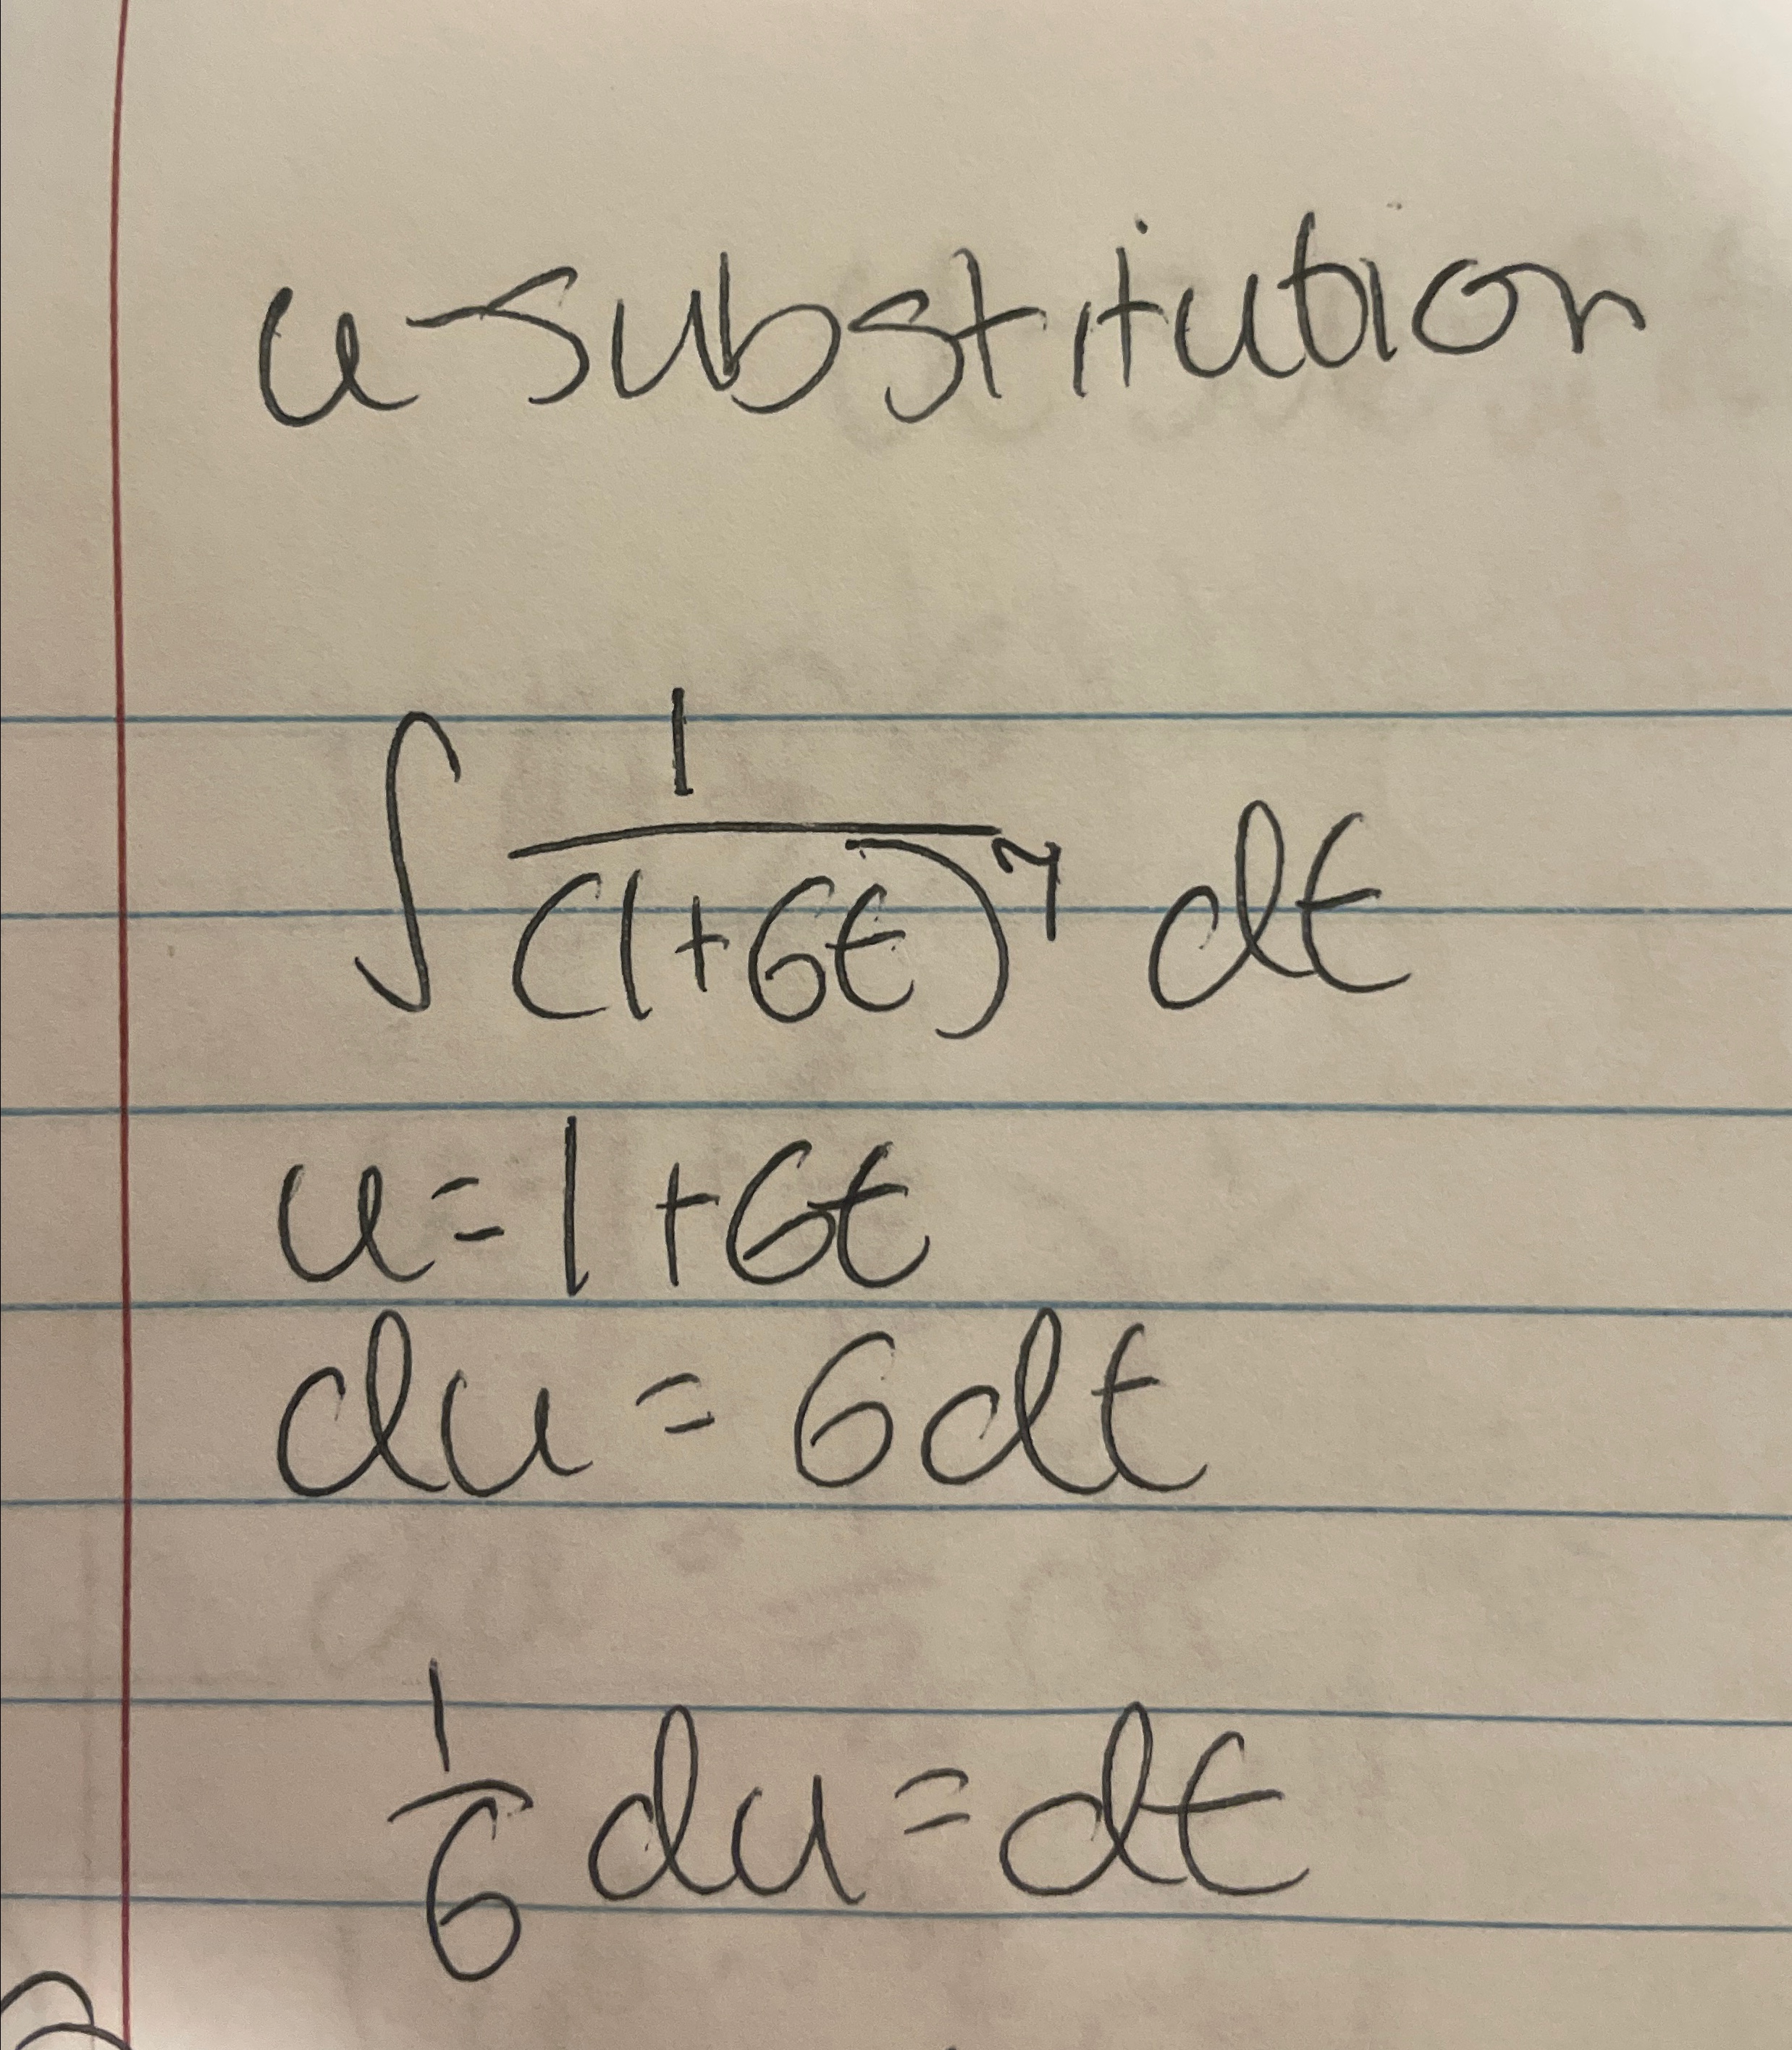 u-substitution
∫ 1/(1+6t)^7 dt
u=1+6t
du=6dt
1/6 du=dt